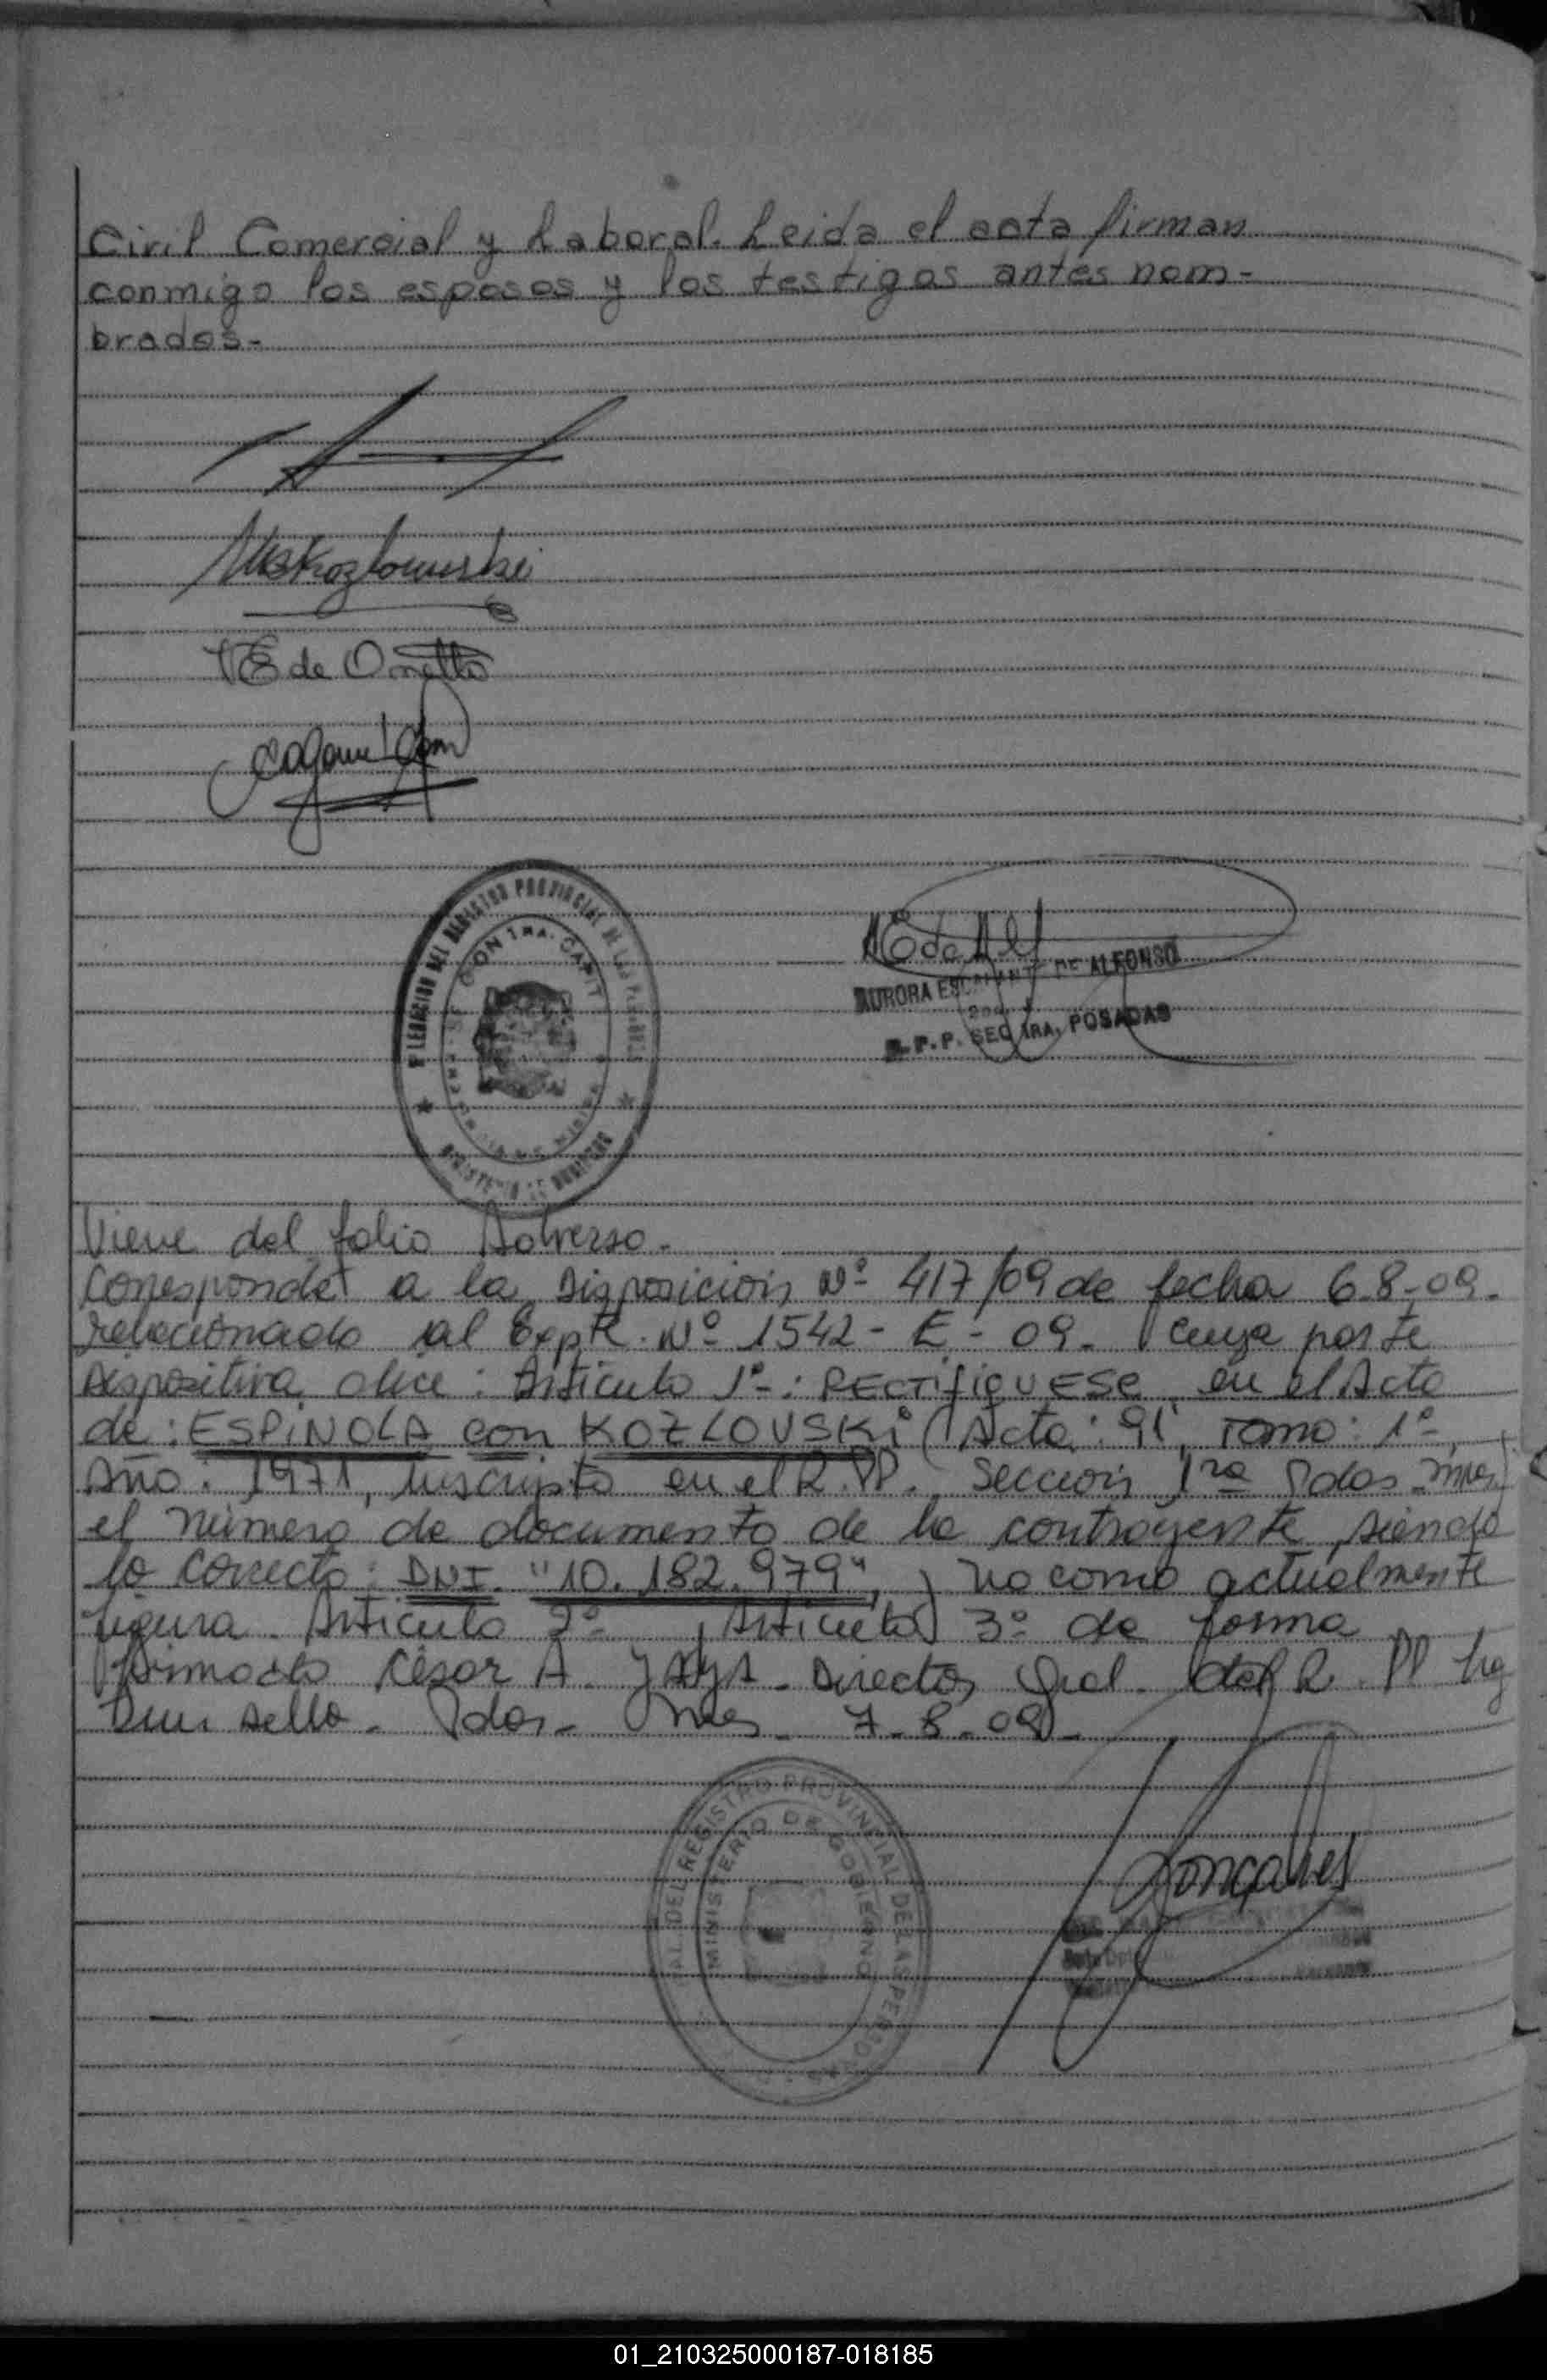 Civil Comercial y Laboral. Leida el acta firman
conmigo los esposos y los testigos antes nom-
brados.-
MKozlowski
VE de Onetto
AURORA ESCALANTE DE ALFONSO
R.P.P. SEC 1RA. POSADAS
DEL REGISTRO PROVINCIAL DE LAS PERSONAS
Viene del folio Adverso.-
Corresponde a la Disposición Nº 417/09 de fecha 6-8-09.
relacionado al Expte. Nº 1542-E-09. Cuya parte
dispositiva dice: Artículo 1º: RECTIFIQUESE en el Acta
de: ESPINOLA con KOZLOVSKi (Acta: 91, Tomo: 1º,
Año: 1971, inscripta en el R.PP. Sección 1ra Pdas. Mnes)
el número de documento de la contrayente, siendo
lo correcto: DNI. "10.182.979", y no como actualmente
figura. Artículo 2º, Artículo 3º de forma
firmado César A. Director Gral. del R. PP Hg
sello. Pdas. Mnes. 7-8-09.-
DEL REGISTRO PROVINCIAL DE LAS PERSONAS
MINISTERIO DE GOBIERNO
Gonçalves
01_210325000187-018185